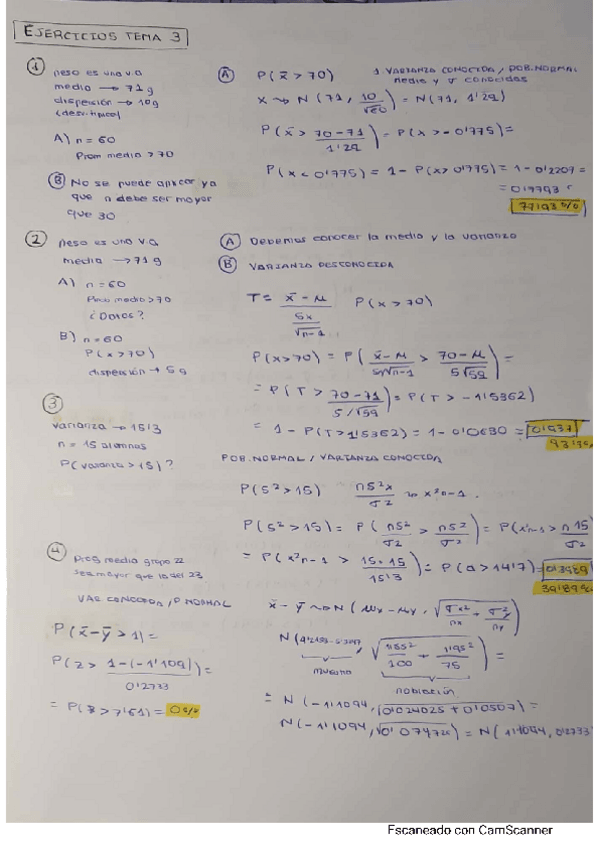 EJERCICIOS TEMA 3
① peso es una v.a
media → 71 g
dispersión → 10g
(desv. típica)
A) n = 60
Prom medio > 70
Ⓑ No se puede aplicar ya
que n debe ser mayor
que 30
Ⓐ P(x̄ > 70)
1 VARIANZA CONOCIDA / POB. NORMAL
media y σ conocidas
X ~> N (71, 10/√60) = N(71, 1'29)
P(x̄ > 70-71/1'29) = P(x > -0'775) =
P(x < 0'775) = 1 - P(x > 0'775) = 1 - 0'2207 =
= 0'7793
77'93 %
② peso es una v.a
media → 71 g
A) n = 60
Peso medio > 70
¿Datos?
B) n = 60
P(x > 70)
dispersión → 5 g
Ⓐ Debemos conocer la media y la varianza
Ⓑ VARIANZA DESCONOCIDA
T = x̄ - μ / Sx/√n-1   P(x > 70)
P(x > 70) = P( x̄ - μ / S/√n-1 > 70 - μ / 5√59 ) =
= P( T > 70 - 71 / 5/√59 ) = P(T > -1'5362)
= 1 - P(T > 1'5362) = 1 - 0'0630 = 0'937
③
varianza → 15'3
n = 15 alumnos
P(varianza > 15) ?
POB. NORMAL / VARIANZA CONOCIDA
P(S² > 15)   nS²x/σ² ~> x²n-1.
P(S² > 15) = P( nS²/σ² > nS²/σ² ) = P(x²n-1 > n 15/σ²
= P(x²n-1 > 15·15/15'3) = P(a > 14'7) = 0'3989
39'89 %
④ Prog medio grupo 22
sea mayor que la del 23
VAR CONOCIDA / P NORMAL
P(x̄ - ȳ > 1) =
P(z > 1-(-1'109)/0'2733) =
= P(z > 7'61) = 0 %
x̄ - ȳ ~> N ( μx - μy, √σx²/nx + σy²/ny )
muestra
población
= N (-1'1094, √0'024025 + 0'0507) =
N(-1'1094, √0'074726) = N( 1'1094, 0'2733
Escaneado con CamScanner